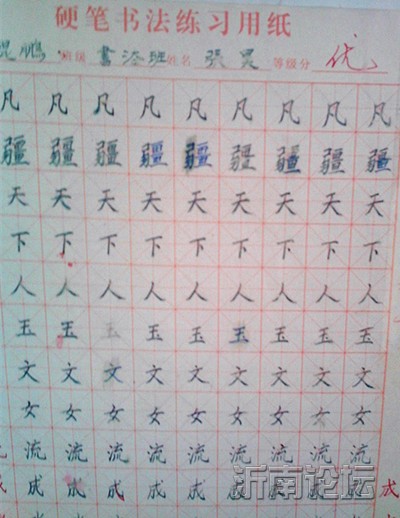 硬笔书法练习用纸
鹏 班级 書法班 姓名 張昊 等级分 优
凡 凡 凡 凡 凡 凡 凡 凡 凡
疆 疆 疆 疆 疆 疆 疆 疆 疆
天 天 天 天 天 天 天 天 天
下 下 下 下 下 下 下 下 下
人 人 人 人 人 人 人 人 人
玉 玉 玉 玉 玉 玉 玉 玉 玉
文 文 文 文 文 文 文 文 文
女 女 女 女 女 女 女 女 女
流 流 流 流 流 流 流 流 流
成 成 成 成 成 成 成 成 成 成
沂南论坛